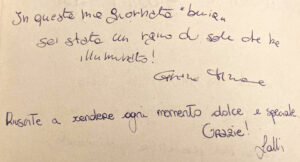 In questa mia giornata "buia"
sei stata un raino di sole che ha
illuminato!
Riuscite a rendere ogni momento dolce e speciale
GRAZIE!
Lalli